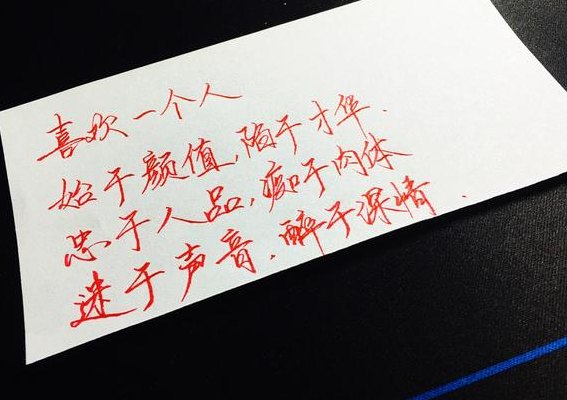 喜欢一个人
始于颜值,陷于才华.
忠于人品,痴于肉体
迷于声音.醉于深情.